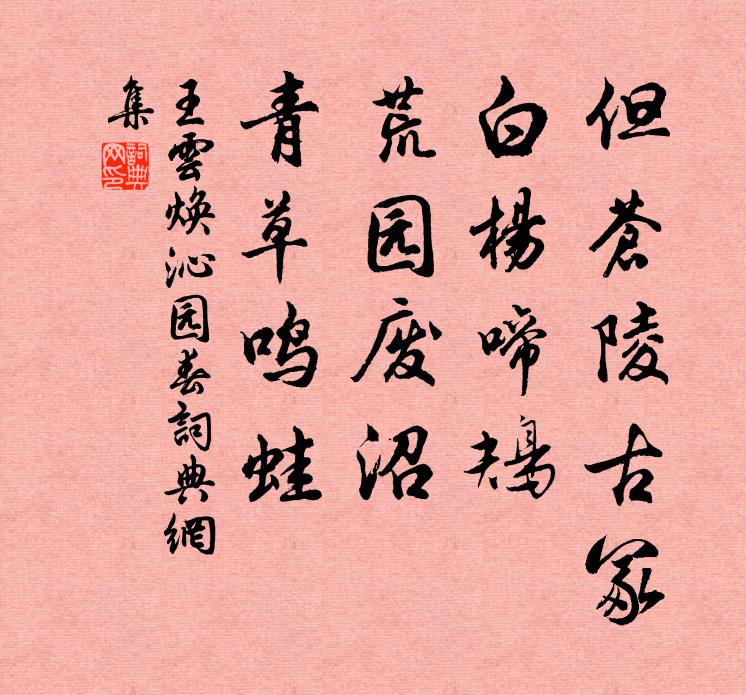 但蒼陵古冢
白楊啼鴂
荒园废沼
青草鸣蛙
王雲焕沁园春詞典網
集
詞典
网印